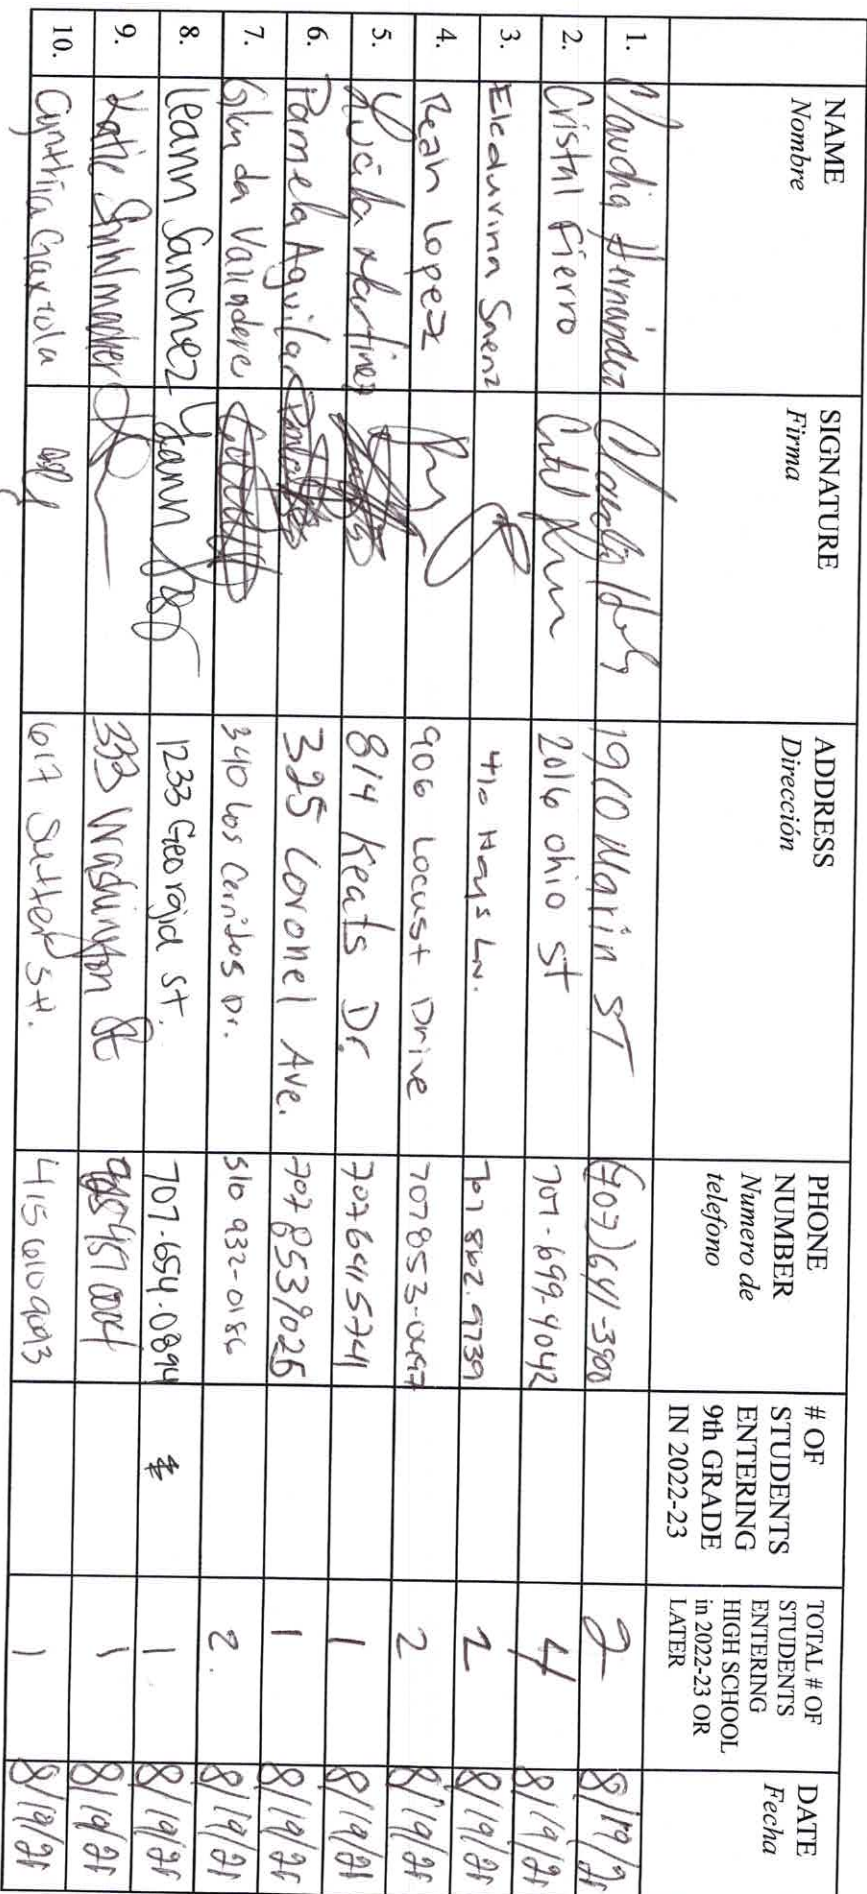 NAME Nombre SIGNATURE Firma ADDRESS Dirección PHONE NUMBER Numero de telefono # OF STUDENTS ENTERING 9th GRADE IN 2022-23 TOTAL # OF STUDENTS ENTERING HIGH SCHOOL in 2022-23 OR LATER DATE Fecha
1. Claudia Hernández 1910 Marin ST (707)641-3900 2 8/19/21
2. Cristal Fierro 2016 Ohio St 707-699-4042 4 8/19/21
3. Saenz 410 Hays Ln. 707 862.9739 2 8/19/21
4. Lopez 906 Locust Drive 707 853- 2 8/19/21
5. Lucila Martinez 814 Keats Dr. 707 6415741 1 8/19/21
6. Pamela Aguilar 325 Coronel Ave. 707 8539025 1 8/19/21
7. 340 Los Cerritos Dr. 510 932-0186 2. 8/19/21
8. Leann Sanchez 1233 Georgia St. 707-654-0894 1 8/19/21
9. Katie 333 Washington St 1 8/19/21
10. Cynthia 617 Sutter St. 415 1 8/19/21